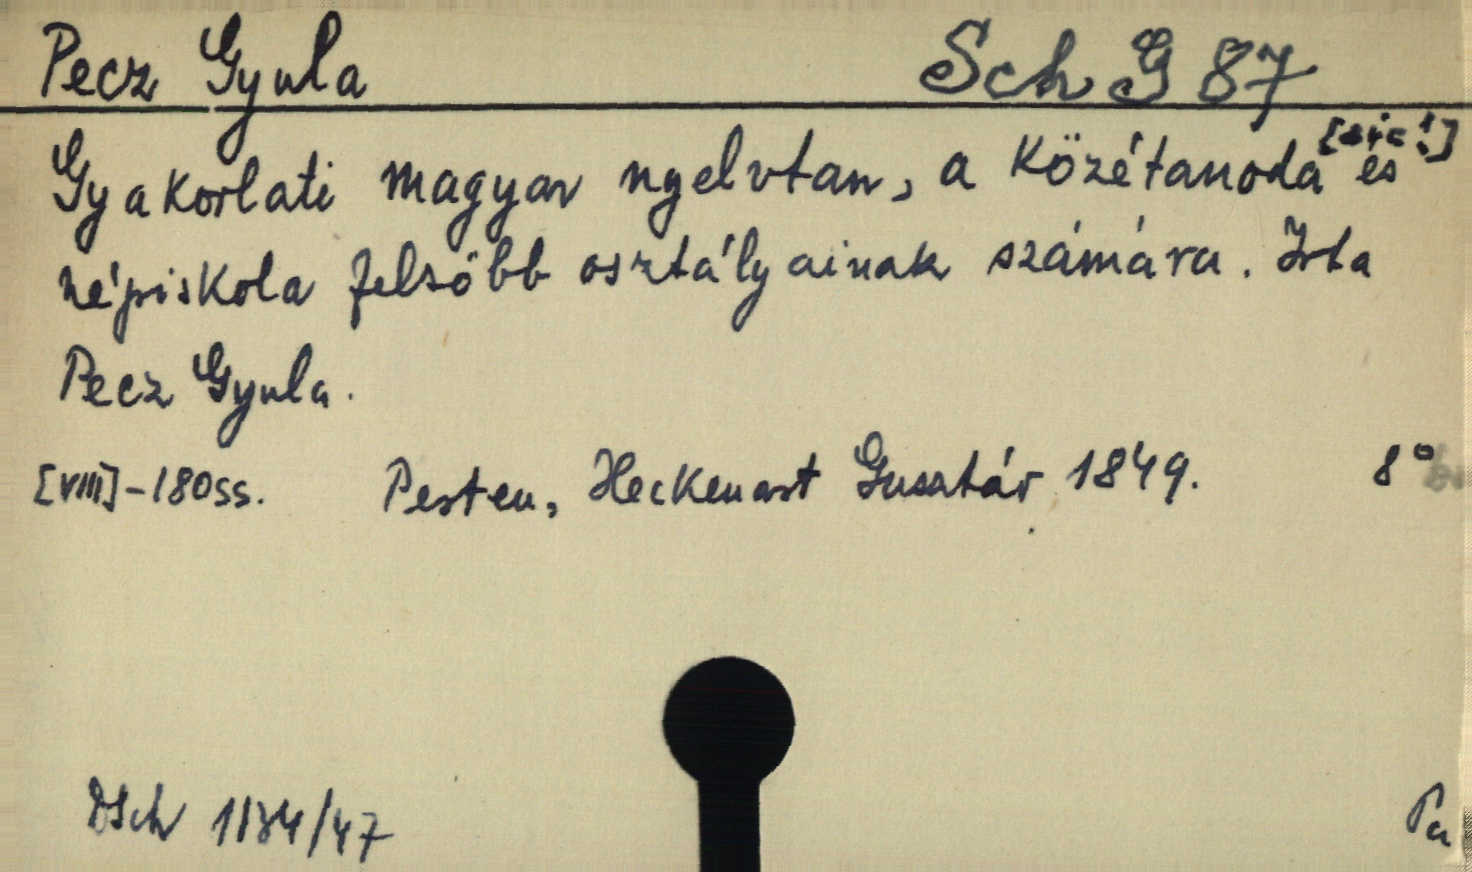 Pecz Gyula Sch G 87
Gyakorlati magyar nyelvtan, a Közétanoda [sic!] és
népiskola felsőbb osztályainak számára. Irta
Pecz Gyula.
[VIII]-180ss. Pesten, Heckenast Gusztáv 1849. 8°
DSch 1134/47 Pa